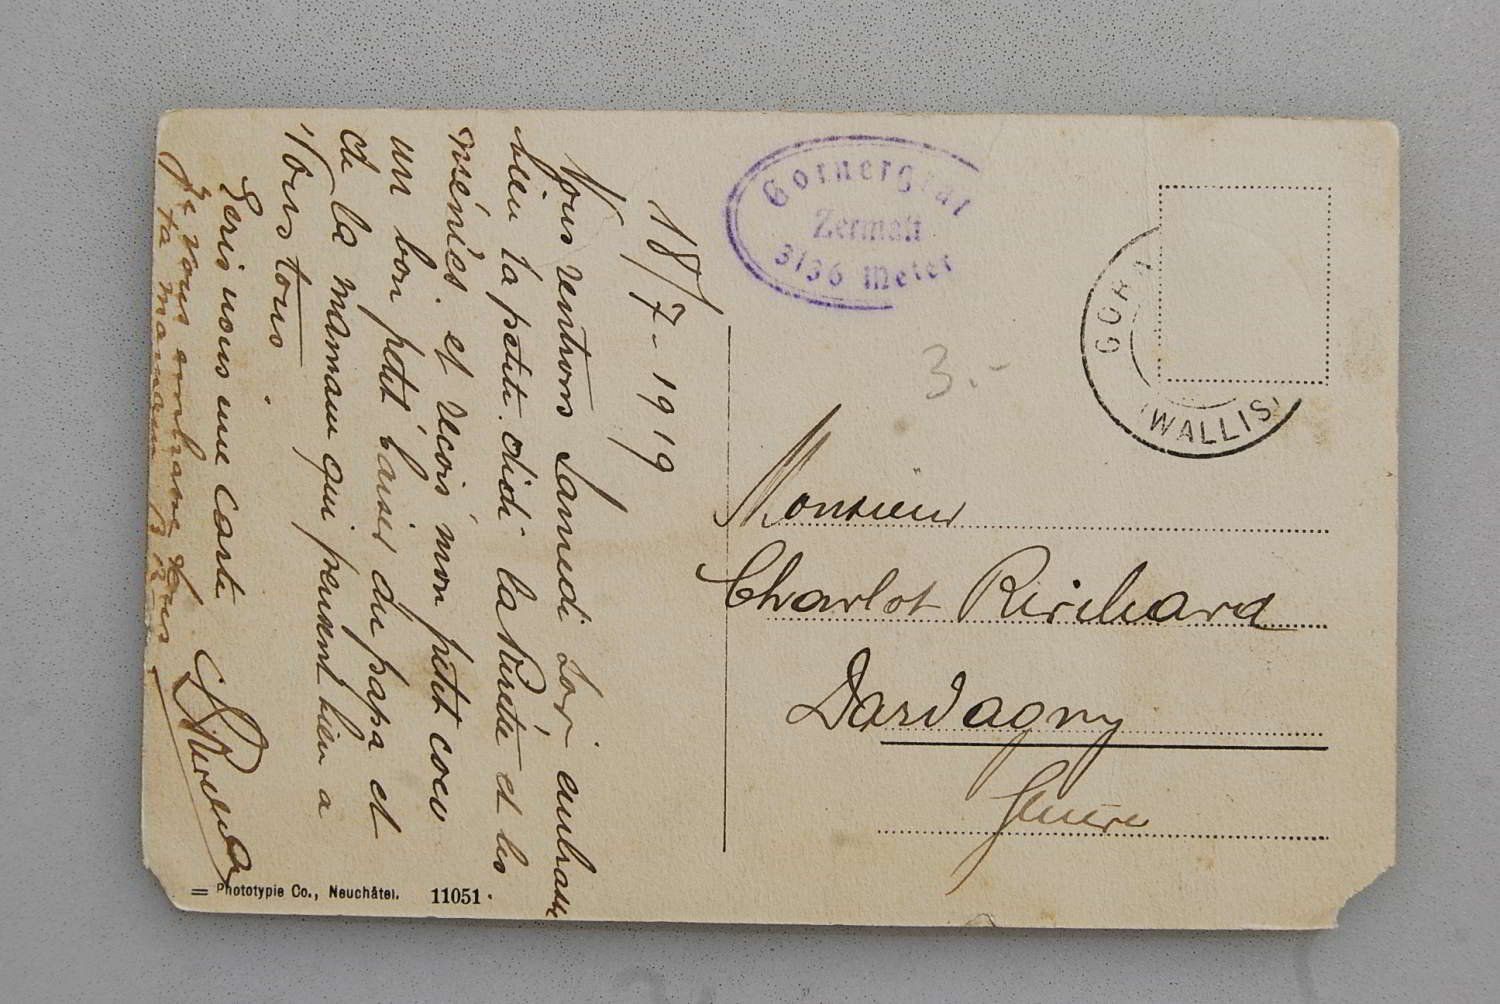 18/7-1919
Nous rentrons Samedi soir, embrasse
bien ta petite didi la Pirète et les
ménies. et reçois mon petit coeur
un bon petit baiser du papa et
de la maman qui pensent bien a
Vous tous.
Ecris nous une Carte
Je vous embrasse tous
ta maman
Gornergrat
Zermatt
3136 Meter
GORN
(WALLIS)
3.-
Monsieur
Charlot Ririchard
Dardagny
Genève
Phototypie Co., Neuchâtel. 11051